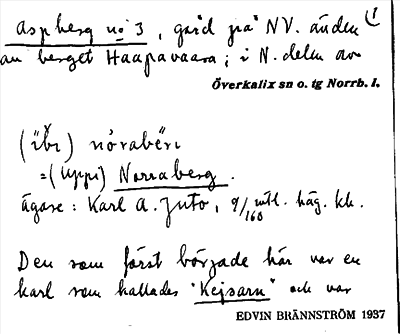 Aspberg no 3, gård på NV. änden
av berget Haapavaara; i N. delen av
Överkalix sn o. tg Norrb. l.
(ĭbĭ) nórabĕri
=(Uppi) Norraberg.
Ägare: Karl A. Juto, 9/160 mtl. häg. kh.
Den som först började här var en
karl som kallades "Kejsarn" och var
EDVIN BRÄNNSTRÖM 1937